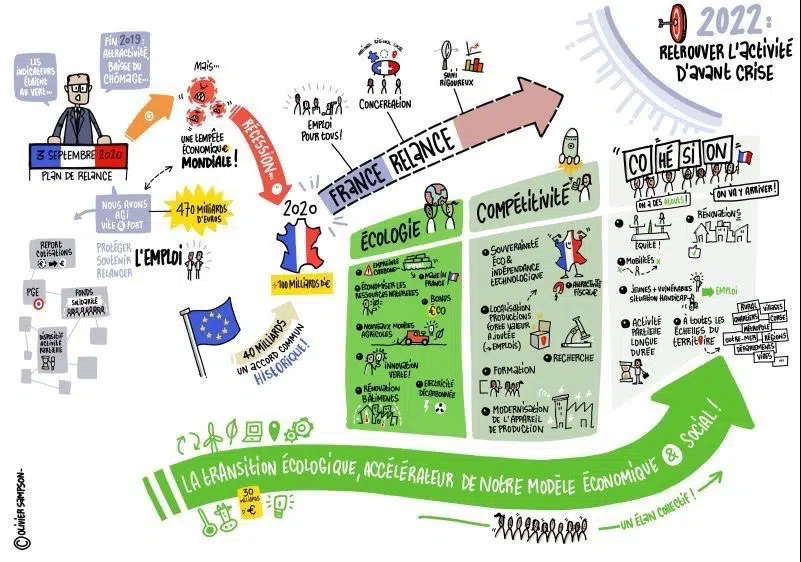 LES
INDICATEURS
ÉTAIENT
AU VERT...
FIN 2019:
ATTRACTIVITÉ,
BAISSE DU
CHÔMAGE...
3 SEPTEMBRE 2020
PLAN DE RELANCE
MAIS...
UNE TEMPÊTE
ÉCONOMIQUE
MONDIALE !
RÉCESSION...
NOUS AVONS
AGI
VITE & FORT
470 MILLIARDS
D'EUROS
PROTÉGER
SOUTENIR
RELANCER
L'EMPLOI
REPORT
COTISATIONS
PGE
FONDS
SOLIDARITÉ
DISPOSITIF
ACTIVITÉ
PARTIELLE
2020
+100 MILLIARDS D'€
40 MILLIARDS
UN ACCORD COMMUN
HISTORIQUE !
EMPLOI
POUR TOUS !
NATIONAL RÉGIONAL LOCAL
CONCERTATION
SUIVI
RIGOUREUX
FRANCE RELANCE
2022:
RETROUVER L'ACTIVITÉ
D'AVANT CRISE
ÉCOLOGIE
EMPREINTE
CARBONE
MADE IN
FRANCE !
ÉCONOMISER LES
RESSOURCES NATURELLES
BONUS
ECO
NOUVEAUX MODÈLES
AGRICOLES
INNOVATION
VERTE !
RÉNOVATION
BÂTIMENTS
ÉLECTRICITÉ
DÉCARBONNÉE
COMPÉTITIVITÉ
SOUVERAINETÉ
ÉCO &
INDÉPENDANCE
TECHNOLOGIQUE
ATTRACTIVITÉ
FISCALE
LOCALISATION
PRODUCTIONS
FORTE VALEUR
AJOUTÉE
(→ EMPLOIS)
RECHERCHE
FORMATION
MODERNISATION
DE L'APPAREIL
DE PRODUCTION
COHÉSION
ON A DES ATOUTS !
ON VA Y ARRIVER !
ÉQUITÉ !
RÉNOVATIONS
MOBILITÉS
JEUNES + VULNÉRABLES
SITUATION HANDICAP
EMPLOI
ACTIVITÉ
PARTIELLE
LONGUE
DURÉE
À TOUTES LES
ÉCHELLES DU
TERRITOIRE
RURAL
VILLAGES
QUARTIERS
CORSE
MÉTROPOLE
OUTRE-MER
RÉGIONS
DÉPARTEMENTS
VILLES
...
LA TRANSITION ÉCOLOGIQUE, ACCÉLÉRATEUR DE NOTRE MODÈLE ÉCONOMIQUE & SOCIAL !
30
MILLIARDS
D'€
UN ÉLAN COLLECTIF !
© OLIVIER SAMPSON